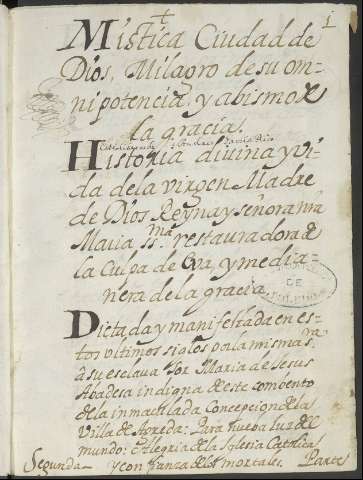 1
Mistica Ciudad de
Dios, Milagro de su om-
nipotencia, y abismo de
la gracia.
Historia divina, y vi-
da de la virgen Madre
de Dios Reyna y señora nra
Maria ssma. restauradora de
la Culpa de Eva, y media-
nera de la gracia.
DE
Dictada y manifestada en es-
tos ultimos siglos por la misma sra
a su esclava Sor Maria de Jesus
Abadesa indigna de este combento
de la inmaculada Concepcion de la
Villa de Agreda: Para nueva luz del
mundo: Alegria de la Iglesia Catolica/
Segunda y confianza de los mortales. Parte